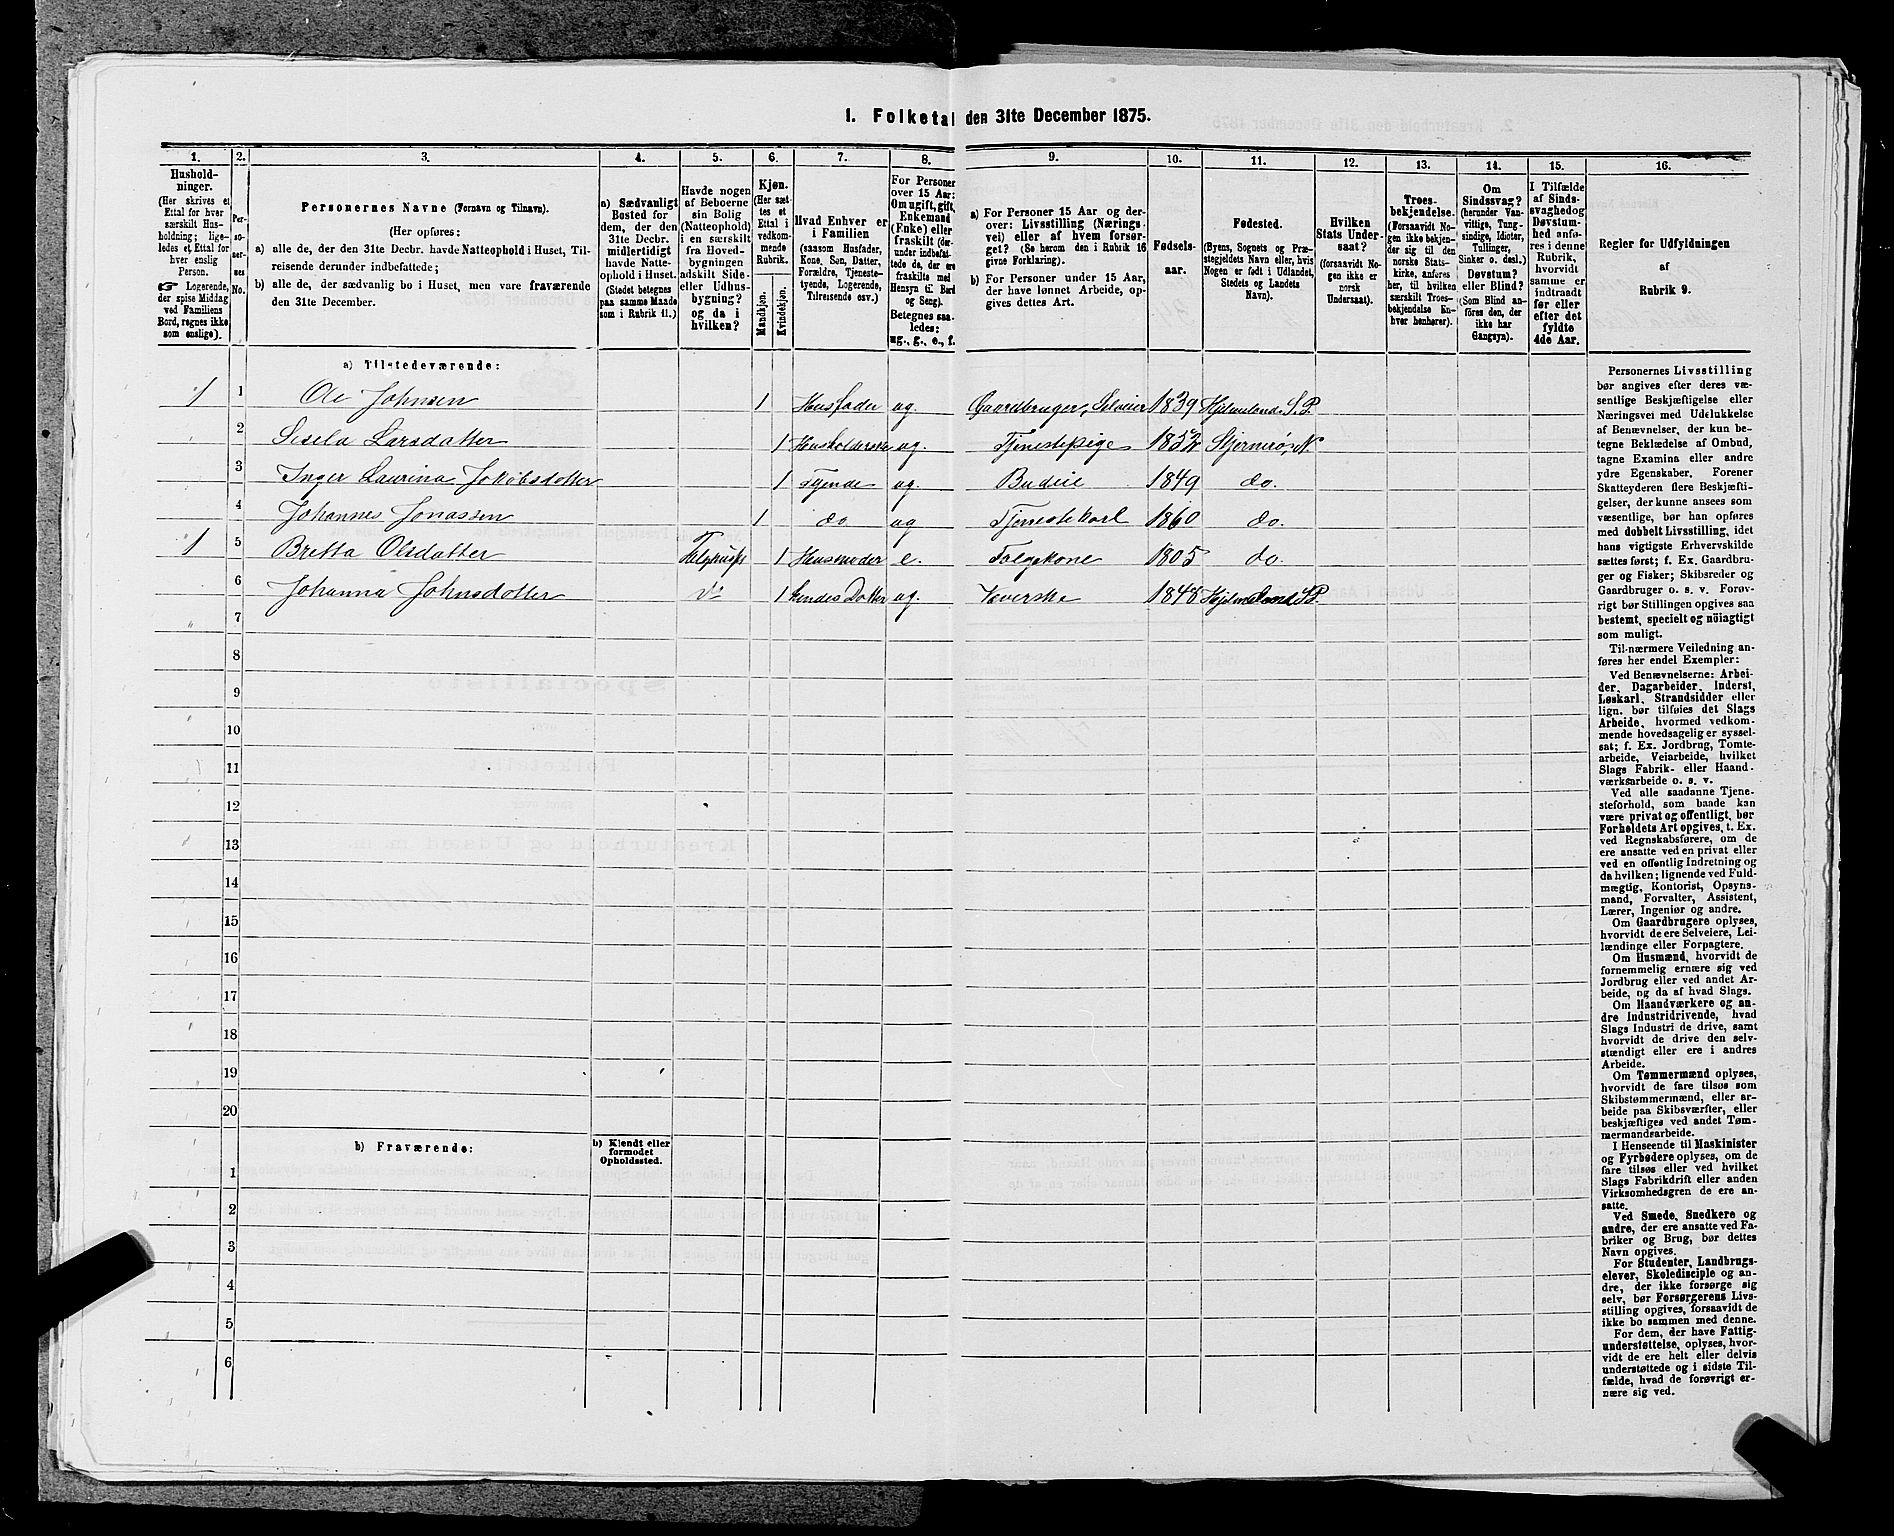 1. Folketal den 31te December 1875.
1. 2. 3. 4. 5. 6. 7. 8. 9. 10. 11. 12. 13. 14. 15. 16.
Hushold-
ninger.
(Her skrives et
Ettal for hver
særskilt Hus-
holdning; lige-
ledes et Ettal for
hver enslig
Person.
☞ Logerende,
der spise Middag
ved Familiens
Bord, regnes ikke
som enslige).
Per-
so-
ner-
nes
No.
Personernes Navne (Fornavn og Tilnavn).
(Her opføres:
a) alle de, der den 31te Decbr. havde Natteophold i Huset, Til-
reisende derunder indbefattede;
b) alle de, der sædvanlig bo i Huset, men vare fraværende
den 31te December.
a) Sædvanligt
Bosted for
dem, der den
31te Decbr.
midlertidigt
havde Natte-
ophold i Huset.
(Stedet betegnes
paa samme Maade
som i Rubrik 11.)
Havde nogen
af Beboerne
sin Bolig
(Natteophold)
i en særskilt
fra Hoved-
bygningen
adskilt Side-
eller Udhus-
bygning?
og da i
hvilken?
Kjøn.
(Her sæt-
tes et
Ettal i
vedkom-
mende
Rubrik.
Mandkjøn.
Kvindekjøn.
Hvad Enhver er
i Familien
(saasom Husfader,
Kone, Søn, Datter,
Forældre, Tjeneste-
tyende, Logerende,
Tilreisende osv.)
For Personer
over 15 Aar:
Om ugift, gift,
Enkemand
(Enke) eller
fraskilt (der-
under indbefat-
tede de, der ere
fraskilte med
Hensyn til Bord
og Seng).
Betegnes saa-
ledes:
ug., g., e., f.
a) For Personer 15 Aar og der-
over: Livsstilling (Nærings-
vei) eller af hvem forsør-
get? (Se herom den i Rubrik 16
givne Forklaring).
b) For Personer under 15 Aar,
der have lønnet Arbeide, op-
gives dettes Art.
Fødsels-
aar.
Fødested.
(Byens, Sognets og Præ-
stegjeldets Navn eller, hvis
Nogen er født i Udlandet,
Stedets og Landets
Navn).
Hvilken
Stats Under-
saat?
(forsaavidt No-
gen ikke er
norsk
Undersaat).
Troes-
bekjendelse.
(Forsaavidt No-
gen ikke bekjen-
der sig til den
norske Stats-
kirke, anføres
her, til hvilken
særskilt Troes-
bekjendelse En-
hver henhører).
Om
Sindssvag?
(herunder Van-
vittige, Tung-
sindige, Idioter,
Tullinger,
Sinker o. desl.)
Døvstum?
eller Blind?
(Som Blind an-
føres den, der
ikke har
Gangsyn).
I Tilfælde
af Sinds-
svaghed og
Døvstum-
hed anfø-
res i denne
Rubrik,
hvorvidt
samme er
indtraadt
før eller
efter det
fyldte
4de Aar.
Regler for Udfyldningen
af
Rubrik 9.
a) Tilstedeværende:
1 1 Ole Johnsen 1 Husfader ug. Gaardbruger, Selveier 1839 Hjelmeland S. P.
2 Sesela Larsdatter 1 Husholderske ug. Tjenestepige 1852 Stjernerø, N.
3 Inger Laurina Jakobsdatter 1 Tyende ug. Budeie 1849 do.
4 Johannes Jonassen 1 do ug Tjenestekarl 1860 do.
1 5 Bretta Olsdatter 1 Husmoder e. Folgekone 1805 do.
6 Johanna Johnsdatter 1 hendes Datter ug. 1848 Hjelmeland S.P.
7
8
9
10
11
12
13
14
15
16
17
18
19
20
b) Fraværende:
b) Kjendt eller
formodet
Opholdssted.
1
2
3
4
5
6
Personernes Livsstilling
bør angives efter deres væ-
sentlige Beskjæftigelse eller
Næringsvei med Udelukkelse
af Benævnelser, der kun be-
tegne Beklædelse af Ombud,
tagne Examina eller andre
ydre Egenskaber. Forener
Skatteyderen flere Beskjæfti-
gelser, der kunne ansees som
væsentlige, bør han opføres
med dobbelt Livsstilling, idet
hans vigtigste Erhvervskilde
sættes først; f. Ex. Gaardbru-
ger og Fisker; Skibsreder og
Gaardbruger o. s. v. Forøv-
rigt bør Stillingen opgives saa
bestemt, specielt og nöiagtigt
som muligt.
Til nærmere Veiledning an-
føres her endel Exempler:
Ved Benævnelserne: Arbei-
der, Dagarbeider, Inderst,
Løskarl, Strandsidder eller
lign. bør tilføies det Slags
Arbeide, hvormed vedkom-
mende hovedsagelig er syssel-
sat; f. Ex. Jordbrug, Tomte-
arbeide, Veiarbeide, hvilket
Slags Fabrik- eller Haand-
værksarbeide o. s. v.
Ved alle saadanne Tjene-
steforhold, som baade kan
være privat og offentligt, bør
Forholdets Art opgives, t. Ex.
ved Regnskabsførere, om de
ere ansatte ved en privat eller
ved en offentlig Indretning og
da hvilken; lignende ved Fuld-
mægtig, Kontorist, Opsyns-
mand, Forvalter, Assistent,
Lærer, Ingeniør og andre.
Om Gaardbrugere oplyses,
hvorvidt de ere Selveiere, Lei-
lændinge eller Forpagtere.
Om Husmænd, hvorvidt de
fornemmelig ernære sig ved
Jordbrug eller ved andet Ar-
beide, og da af hvad Slags.
Om Haandværkere og an-
dre Industridrivende, hvad
Slags Industri de drive, samt
hvorvidt de drive den selv-
stændigt eller ere i andres
Arbeide.
Om Tømmermænd oplyses,
hvorvidt de fare tilsøs som
Skibstømmermænd, eller ar-
beide paa Skibsværfter, eller
beskjæftiges ved andet Tøm-
mermandsarbeide.
I Henseende til Maskinister
og Fyrbødere oplyses, om de
fare tilsøs eller ved hvilket
Slags Fabrikdrift eller anden
Virksomhedsgren de ere an-
satte.
Ved Smede, Snedkere og
andre, der ere ansatte ved Fa-
briker og Brug, bør dettes
Navn opgives.
For Studenter, Landbrugs-
elever, Skoledisciple og an-
dre, der ikke forsørge sig
selv, bør Forsørgerens Livs-
stilling opgives, forsaavidt de
ikke bo sammen med denne.
For dem, der have Fattig-
understøttelse, oplyses, hvor-
vidt de ere helt eller delvis
understøttede og i sidste Til-
fælde, hvad de forøvrigt er-
nære sig ved.